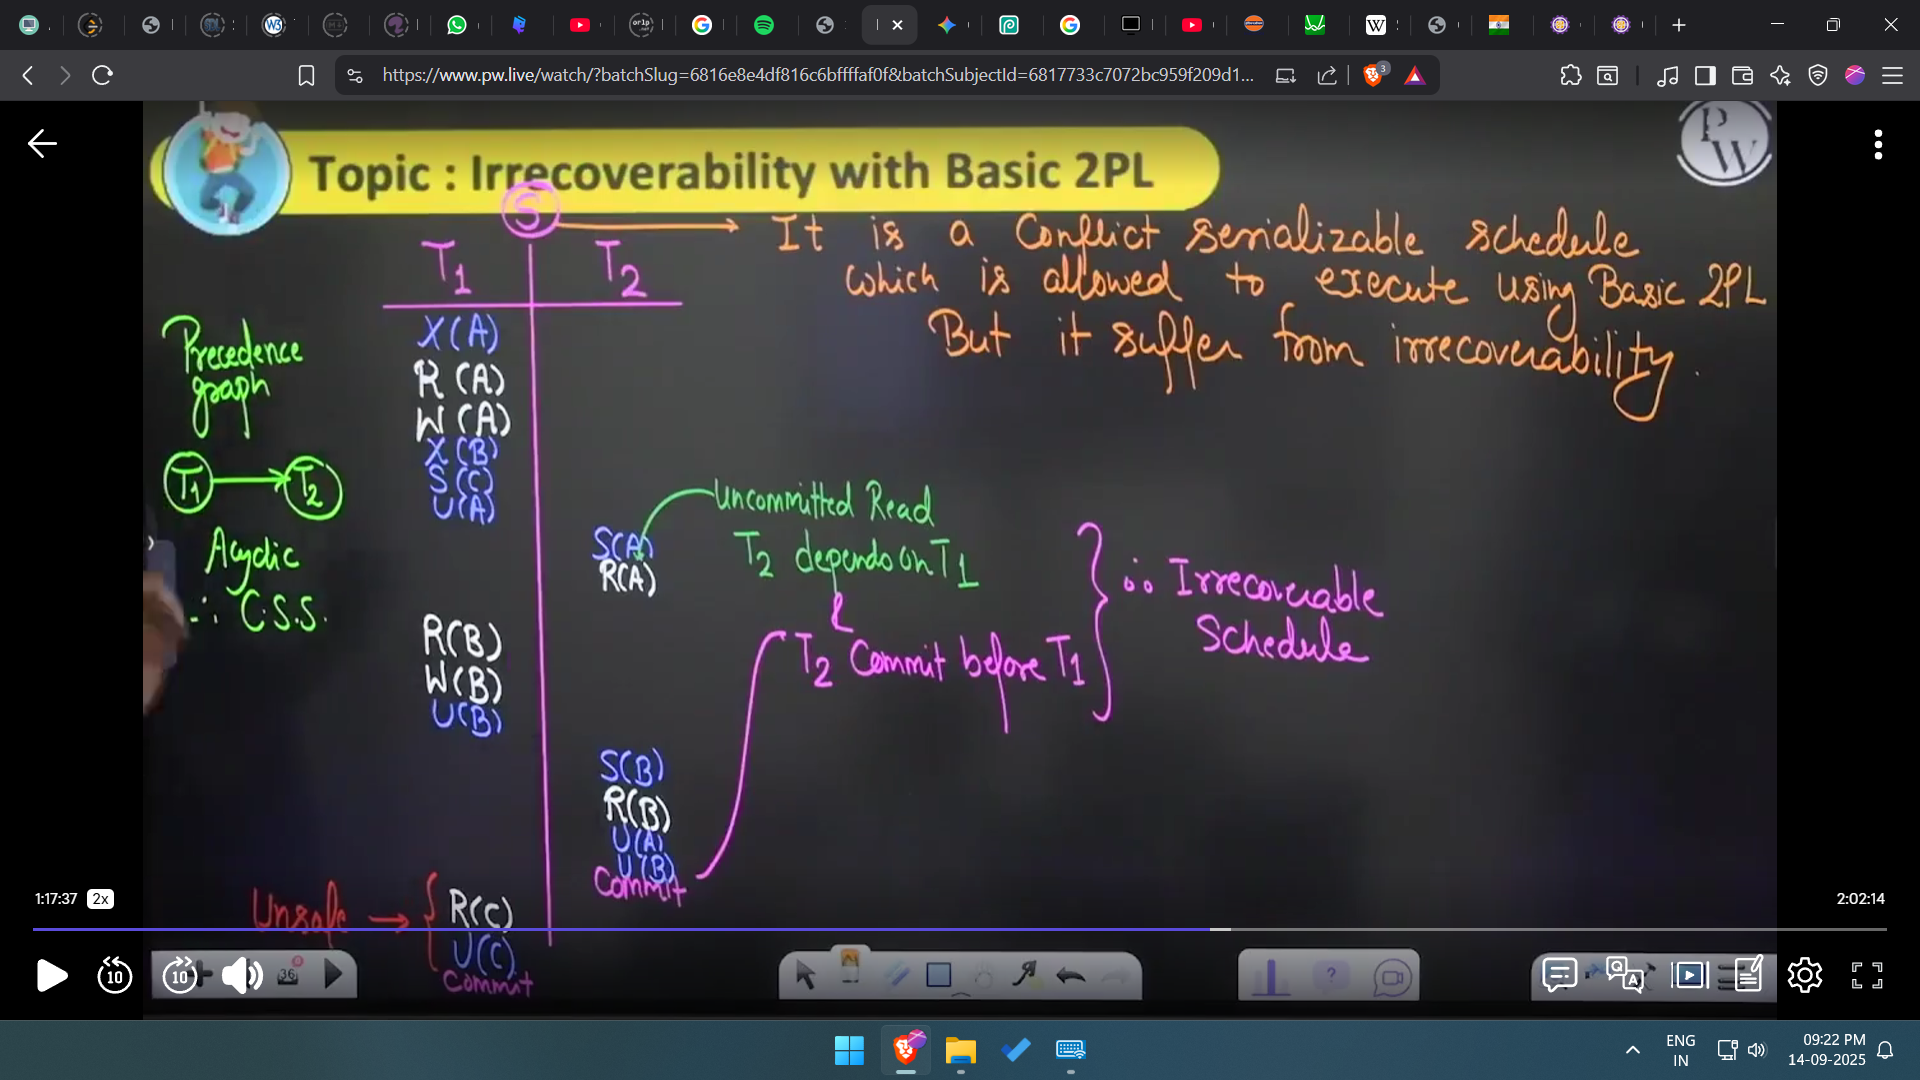 https://www.pw.live/watch/?batchSlug=6816e8e4df816c6bffffaf0f&batchSubjectId=6817733c7072bc959f209d1...
Topic : Irrecoverability with Basic 2PL
P
W
S
It is a Conflict serializable schedule
which is allowed to execute using Basic 2PL
But it suffer from irrecoverability.
T1 T2
X(A)
R(A)
W(A)
X(B)
S(C)
U(A)
Precedence
graph
T1 T2
Acyclic
∴ C.S.S.
S(A)
R(A)
uncommitted Read
T2 depends on T1
&
T2 Commit before T1
∴ Irrecoverable
Schedule
R(B)
W(B)
U(B)
S(B)
R(B)
U(A)
U(B)
Commit
Unsafe
R(C)
U(C)
Commit
1:17:37 2x
2:02:14
10
10
36
ENG
IN
09:22 PM
14-09-2025